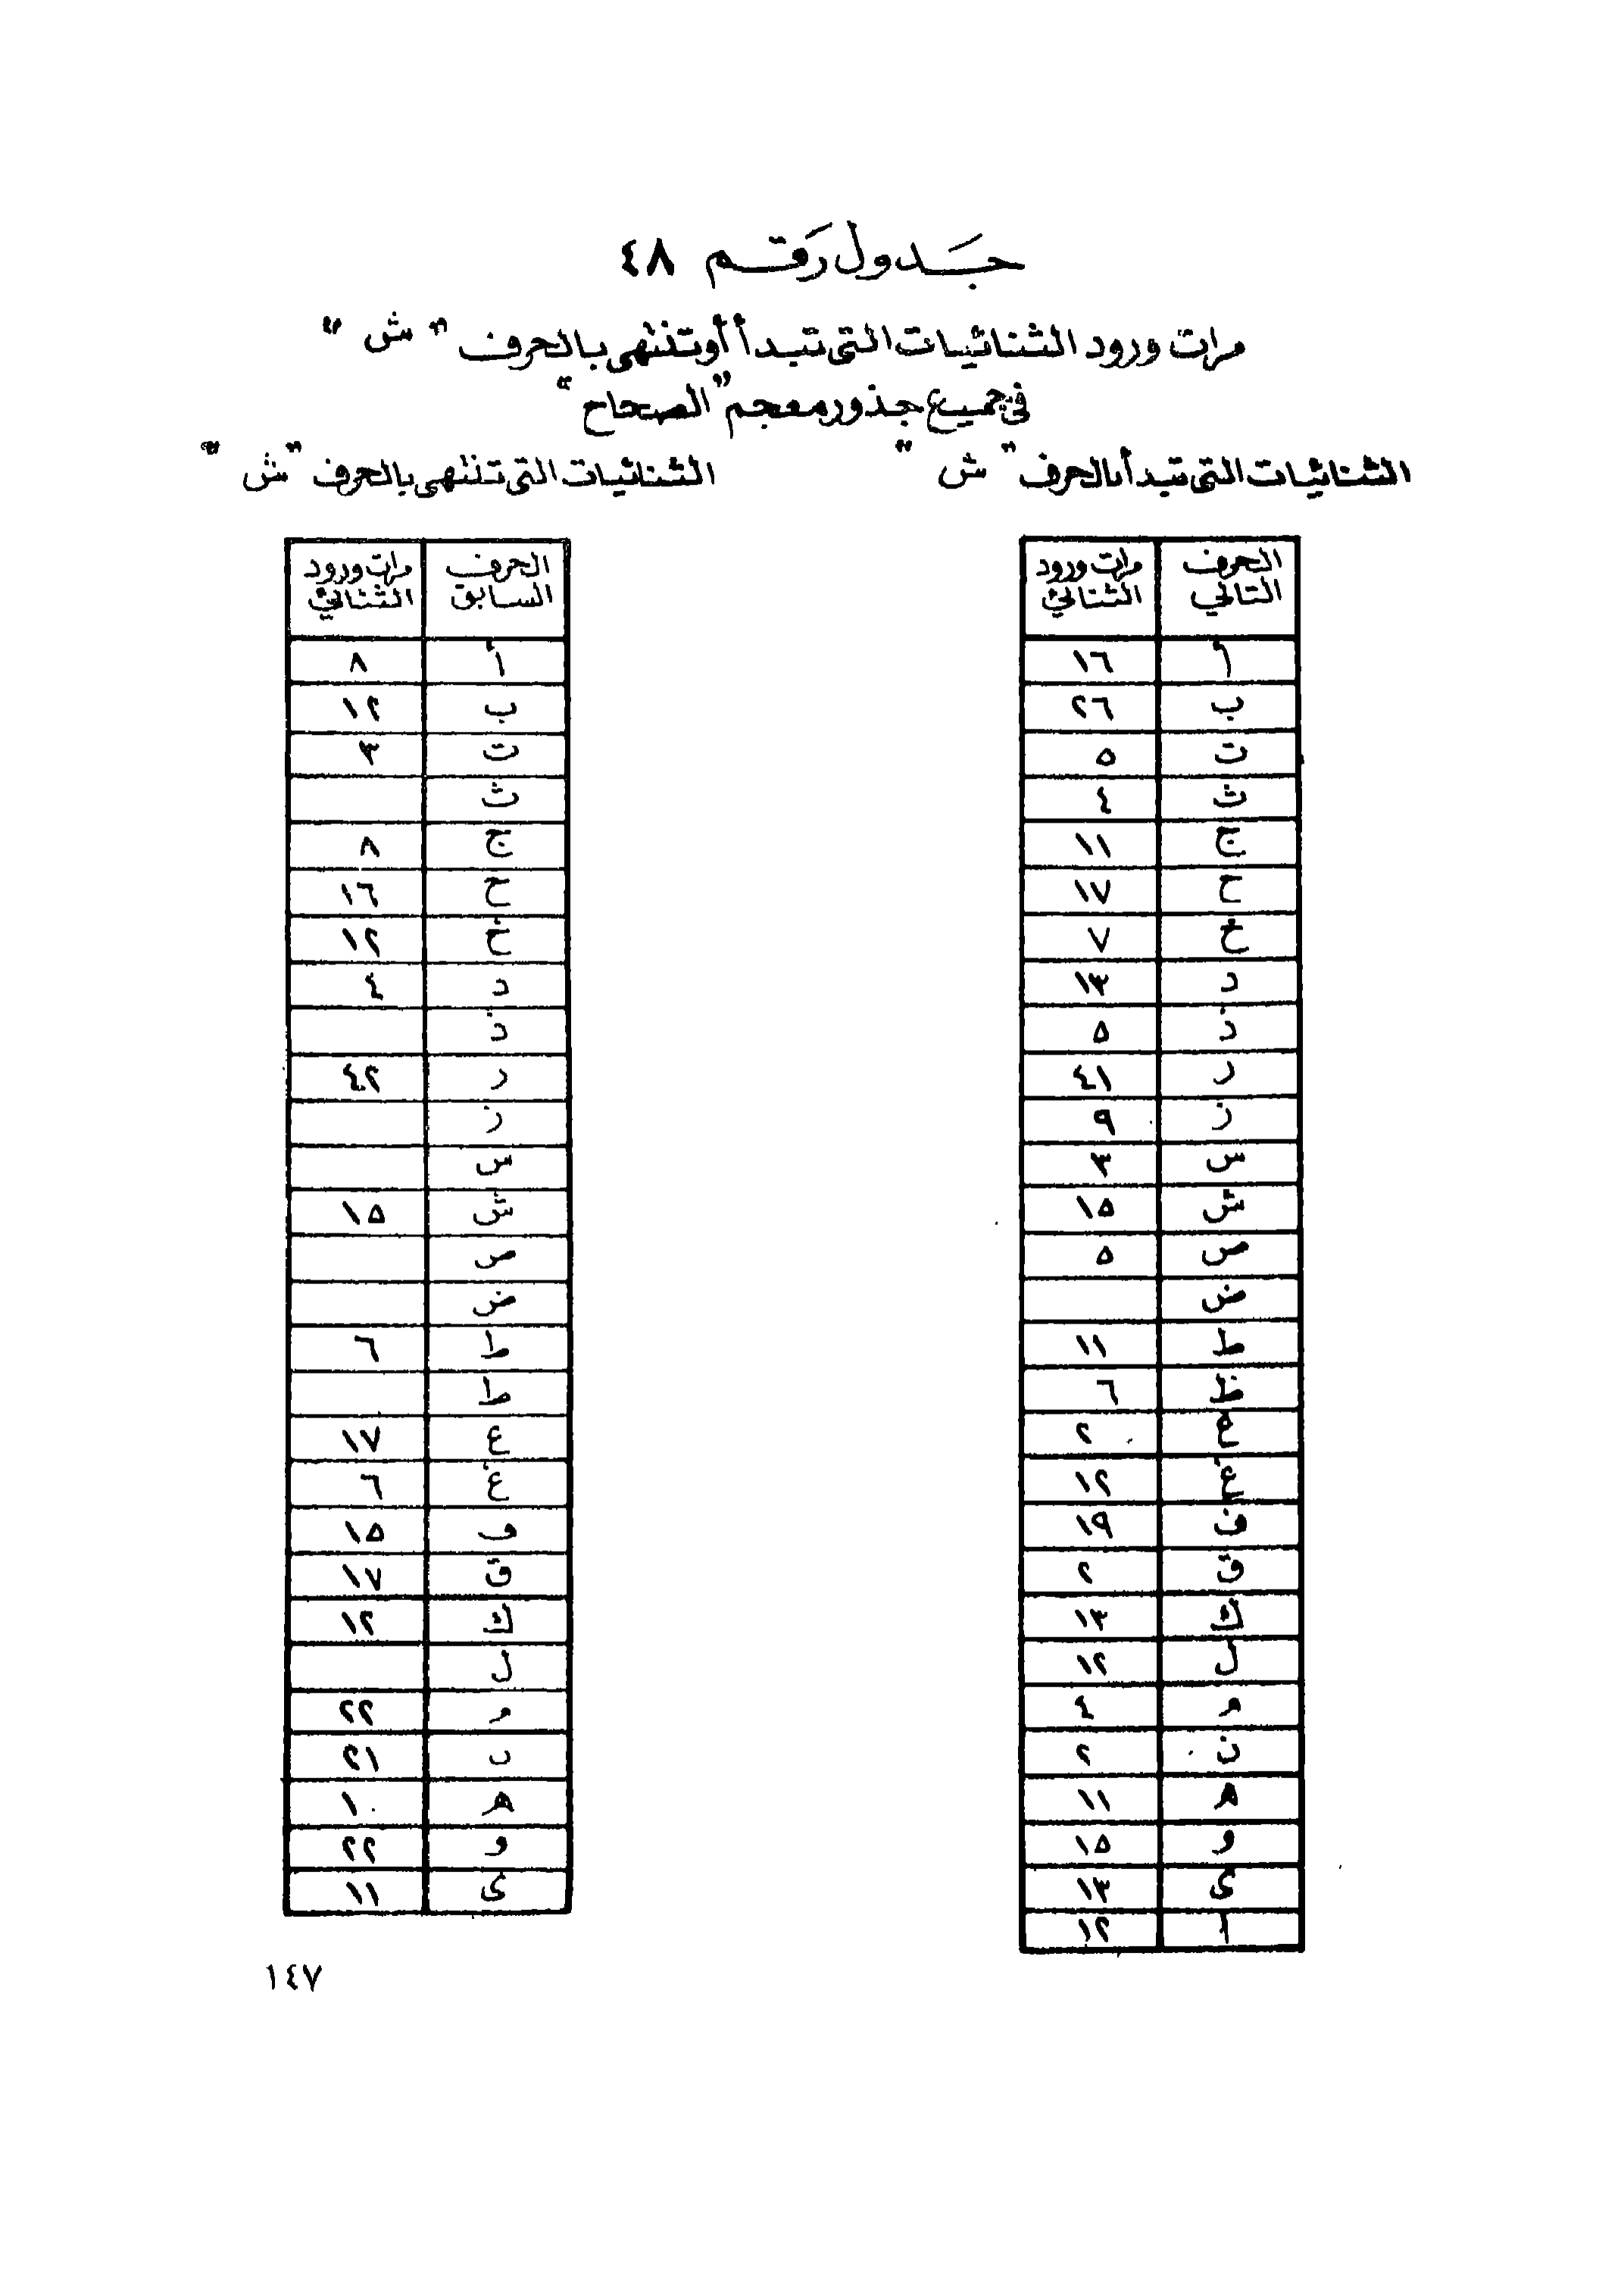 جدول رقم ٤٨
مرات ورود الثنائيات التى تبدأ أو تنتهى بالحرف " ش "
فى جميع جذور معجم "الصحاح"
الثنائيات التى تبدأ بالحرف " ش "
الحرف التالي مرات ورود الثنائي
أ ١٦
ب ٢٦
ت ٥
ث ٤
ج ١١
ح ١٧
خ ٧
د ١٣
ذ ٥
ر ٤١
ز ٩
س ٣
ش ١٥
ص ٥
ض
ط ١١
ظ ٦
ع ٢
غ ١٢
ف ١٩
ق ٢
ك ١٣
ل ١٢
م ٤
ن ٢
ه ١١
و ١٥
ى ١٣
ا ١٢
الثنائيات التى تنتهى بالحرف " ش "
الحرف السابق مرات ورود الثنائي
أ ٨
ب ١٢
ت ٣
ث
ج ٨
ح ١٦
خ ١٢
د ٤
ذ
ر ٤٢
ز
س
ش ١٥
ص
ض
ط ٦
ط
ع ١٧
غ ٦
ف ١٥
ق ١٧
ك ١٢
ل
م ٢٢
ن ٢١
ه ١٠
و ٢٢
ى ١١
١٤٧